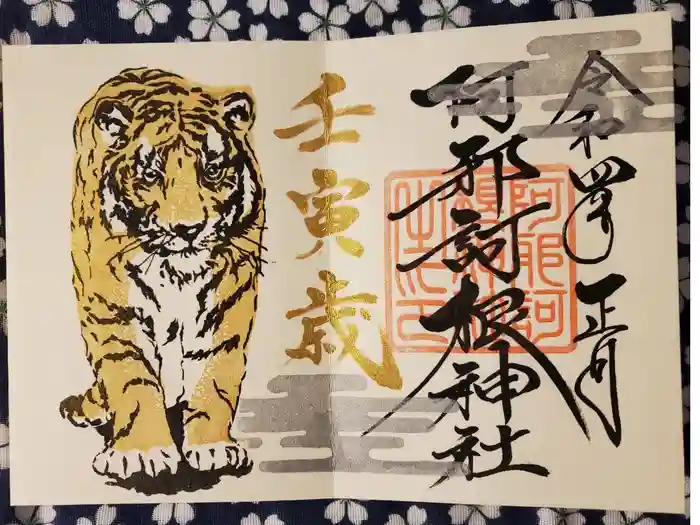 令和四年正月
阿邪訶根神社
壬寅歳